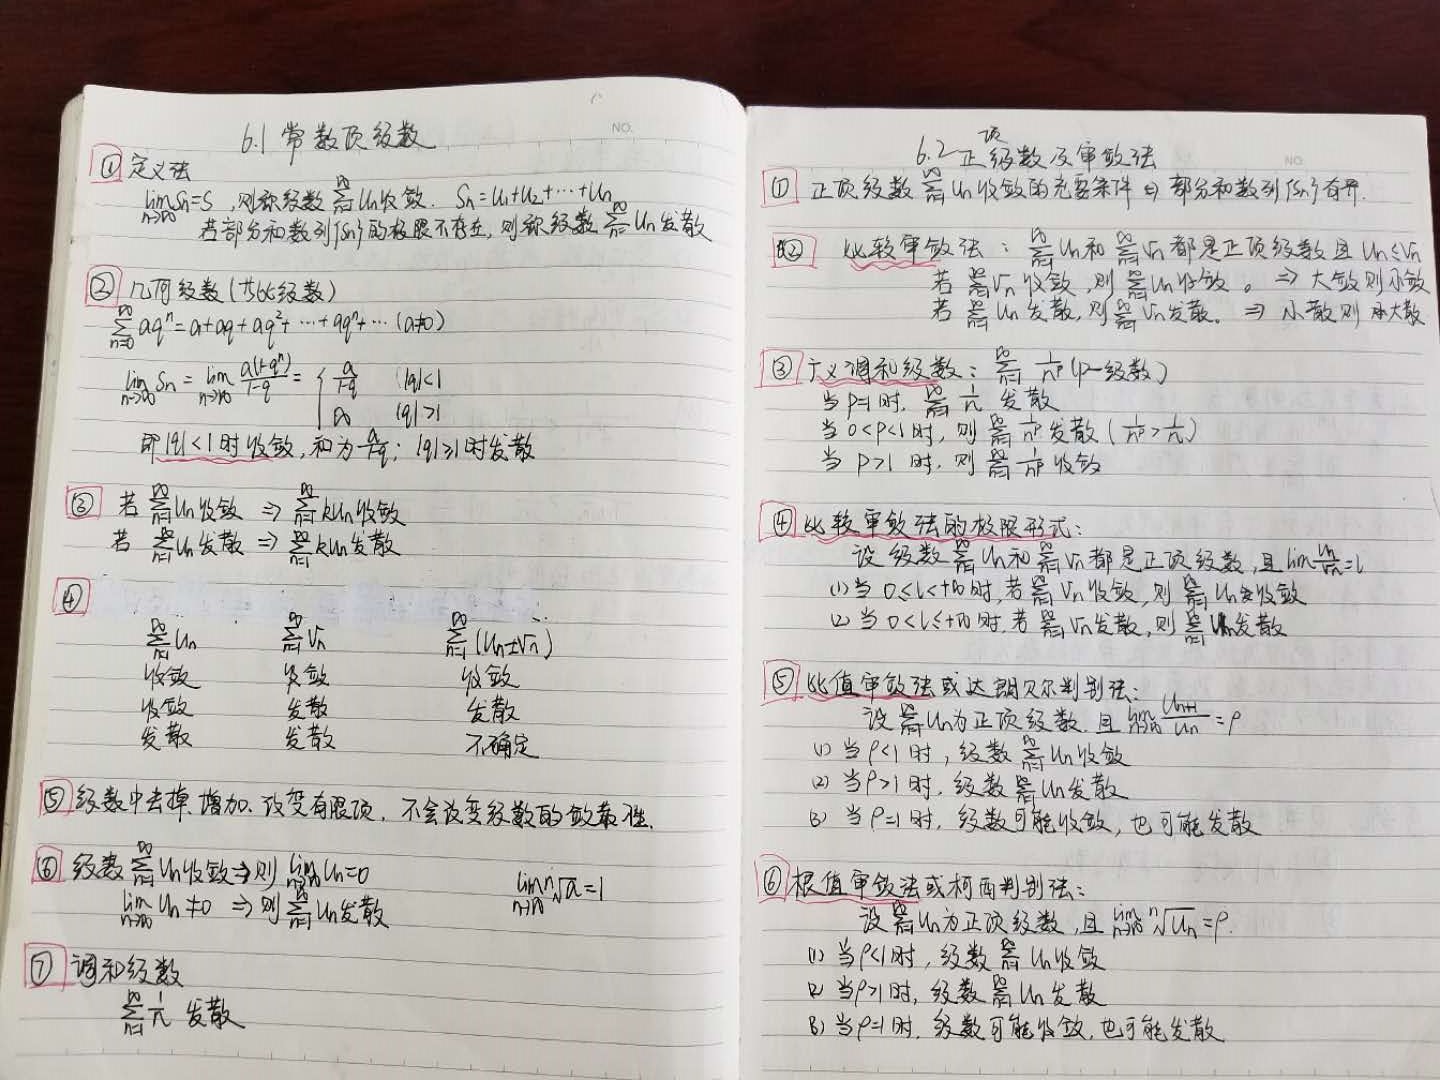 NO.
6.1 常数项级数
① 定义法
lim n→∞ Sn=S,则称级数 ∑n=1∞ Un收敛. Sn=U1+U2+…+Un
若部分和数列{Sn}的极限不存在,则称级数 ∑n=1∞ Un发散
② 几何级数(共比级数)
∑n=0∞ aqⁿ=a+aq+aq²+…+aqⁿ+…(a≠0)
lim n→∞ Sn = lim n→∞ a(1-qⁿ)/1-q = { a/1-q |q|<1
∞ |q|>1
即|q|<1时收敛,和为a/1-q; |q|≥1时发散
③ 若 ∑n=1∞ Un收敛 ⇒ ∑n=1∞ kUn收敛
若 ∑n=1∞ Un发散 ⇒ ∑n=1∞ kUn发散
④
∑n=1∞ Un ∑n=1∞ Vn ∑n=1∞ (Un±Vn)
收敛 收敛 收敛
收敛 发散 发散
发散 发散 不确定
⑤ 级数中去掉、增加、改变有限项,不会改变级数的敛散性.
⑥ 级数 ∑n=1∞ Un收敛⇒则 lim n→∞ Un=0 lim n→∞ ⁿ√a=1
lim n→∞ Un≠0 ⇒则 ∑n=1∞ Un发散
⑦ 调和级数
∑n=1∞ 1/n 发散
NO.
6.2 正项级数及审敛法
① 正项级数 ∑n=1∞ Un收敛的充要条件⇔部分和数列{Sn}有界.
② 比较审敛法: ∑n=1∞ Un和 ∑n=1∞ Vn都是正项级数且Un≤Vn
若 ∑n=1∞ Vn收敛,则 ∑n=1∞ Un收敛。⇒大敛则小敛
若 ∑n=1∞ Un发散,则 ∑n=1∞ Vn发散。⇒小散则大散
③ 广义调和级数: ∑n=1∞ 1/nᵖ (P-级数)
当P=1时, ∑n=1∞ 1/n 发散
当0<P<1时,则 ∑n=1∞ 1/nᵖ 发散(1/nᵖ>1/n)
当P>1时,则 ∑n=1∞ 1/nᵖ 收敛
④ 比较审敛法的极限形式:
设级数 ∑n=1∞ Un和 ∑n=1∞ Vn都是正项级数,且lim Un/Vn=l
(1)当0≤l<+∞时,若 ∑n=1∞ Vn收敛,则 ∑n=1∞ Un收敛
(2)当0<l≤+∞时,若 ∑n=1∞ Vn发散,则 ∑n=1∞ Un发散
⑤ 比值审敛法或达朗贝尔判别法:
设 ∑n=1∞ Un为正项级数,且 lim n→∞ Un+1/Un=ρ
(1)当ρ<1时,级数 ∑n=1∞ Un收敛
(2)当ρ>1时,级数 ∑n=1∞ Un发散
(3)当ρ=1时,级数可能收敛,也可能发散
⑥ 根值审敛法或柯西判别法:
设 ∑n=1∞ Un为正项级数,且 lim n→∞ ⁿ√Un=ρ.
(1)当ρ<1时,级数 ∑n=1∞ Un收敛
(2)当ρ>1时,级数 ∑n=1∞ Un发散
(3)当ρ=1时,级数可能收敛,也可能发散